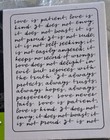 love is patient, love is
kind. It does not envy,
it does not boast, it is
not proud. It is not rude,
it is not self seeking, it
is not easily angered, it
keeps no record of wrongs.
love does not delight in
evil but rejoices with
the truth. It always
protects, always trusts,
always hopes, always
perseveres. love never
fails. love is patient,
love is kind. It does not
envy, it does not boast, it
is not proud. It is not